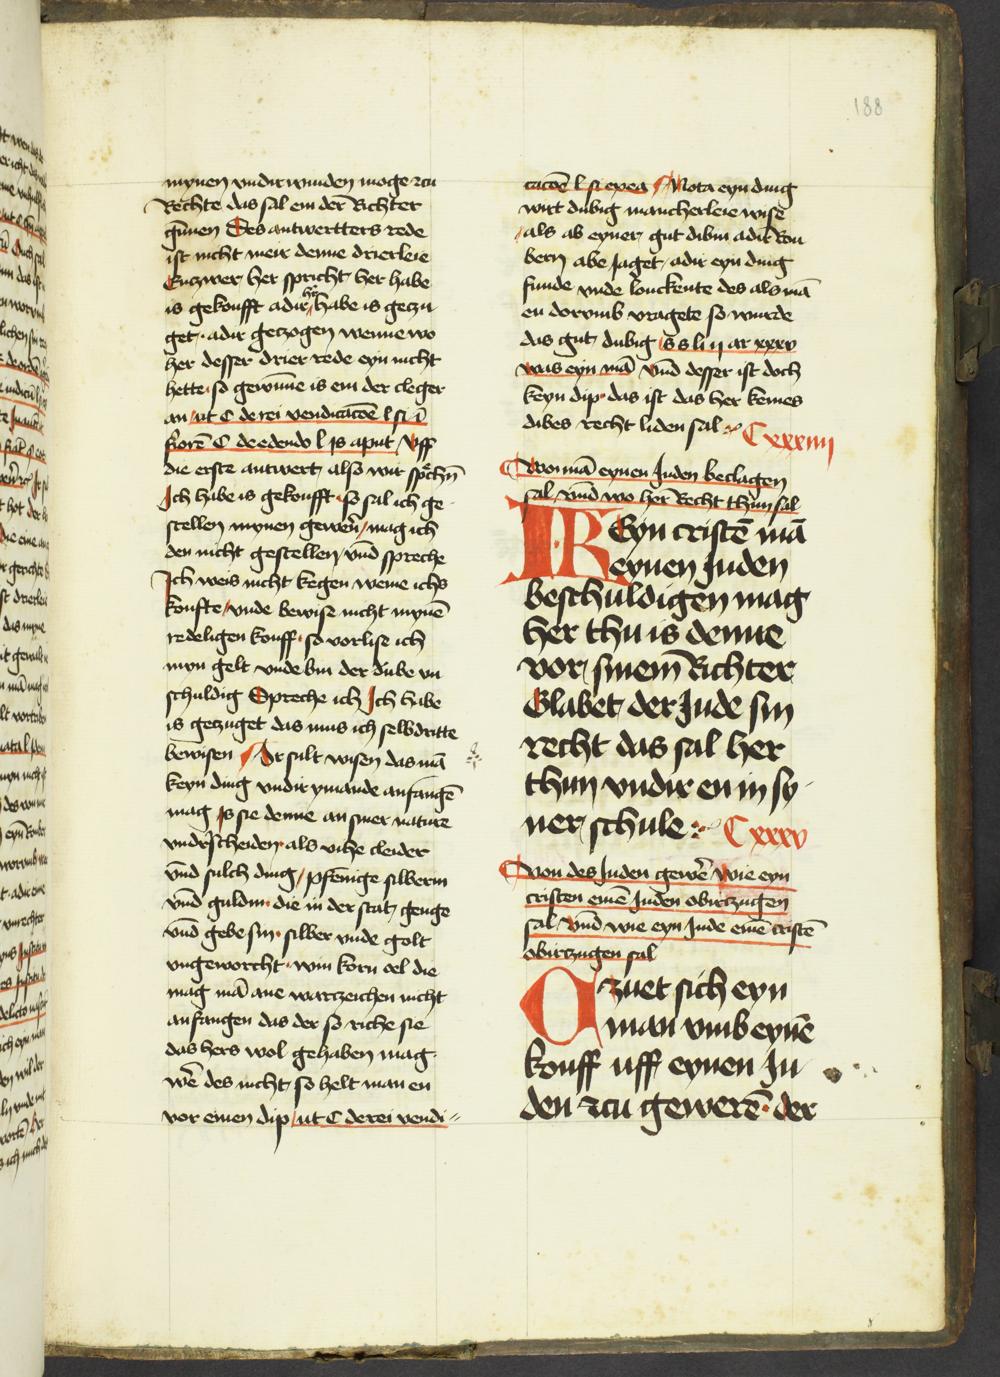 188
mynen vndirwinden moge zcu
Rechte das sal em der Richter
gu̅nen Des antwertters rede
ist nicht meir denne drierleie
Kuczwer, her spricht her habe
is gekoufft adir her habe is geczu
get · adir geczogen wenne wo
her desser drier rede eyn nicht
hette · so gewinne is em der cleger
an / ut C de rei vendicac̅oe̅ l si i̅
fore̅ C de edendo l is aput / Vff
die erste antwert also wir sp̅chn̅
Ich habe is gekoufft · so sal ich ge
stellen mynen gewer̅ / mag ich
den nicht gestellen vnd spreche
Ich weis nicht kegen weme ichs
koufte / vnde bewise nicht myne̅
redeligen kouff · so vorlise ich
myn gelt vnde bin der dube vn
schuldig Spreche ich Ich habe
is geczuget das mus ich selbdritte
bewisen / Ir sult wisen das ma̅
keyn ding vndir ymande anfange̅
mag is sie denne an siner nature
vndirscheiden · als vihe cleider
vnd sulch ding / pfenige silberin
vnd guldin · die in der stat genge
vnd gebe sin · silber vnde golt
vngeworcht · win korn oel die
mag ma̅ ane wartzeichen nicht
anfangen das der so riche sie
das hers wol gehaben mag ·
we̅ des nicht so helt man en
vor einen dip / ut C de rei vendi=
cac̅oe̅ l si epea / Nota eyn ding
wirt dubig mancherleie wise
/ als ab eyner gut dibin adir Rou
bern abe jaget / adir eyn ding
funde vnde louckente des als ma̅
en dorvmb vragete so wurde
das gut dubig / s s li ij ar xxxv
was eyn ma̅ vnd desser ist doch
keyn dip · das ist das her keines
dibes recht liden sal C xxxiiij
Wo ma̅ eynen Juden beclagen
sal vnd wo her Recht thun sal
IR Eyn criste̅ ma̅
eynen Juden
beschuldigen mag
her thu is denne
vor sinem Richter
Glabet der Jude sin
recht das sal her
thun vndir en in sy
ner schule C xxxv
Von des Juden gewe̅r wie eyn
cristen eine̅ Juden obirczugen
sal / vnd wie eyn Jude eine̅ criste̅
obirczugen sal
O zuet sich eyn
man vmb eyne̅
kouff uff eynen Ju
den zcu gewere̅ · der